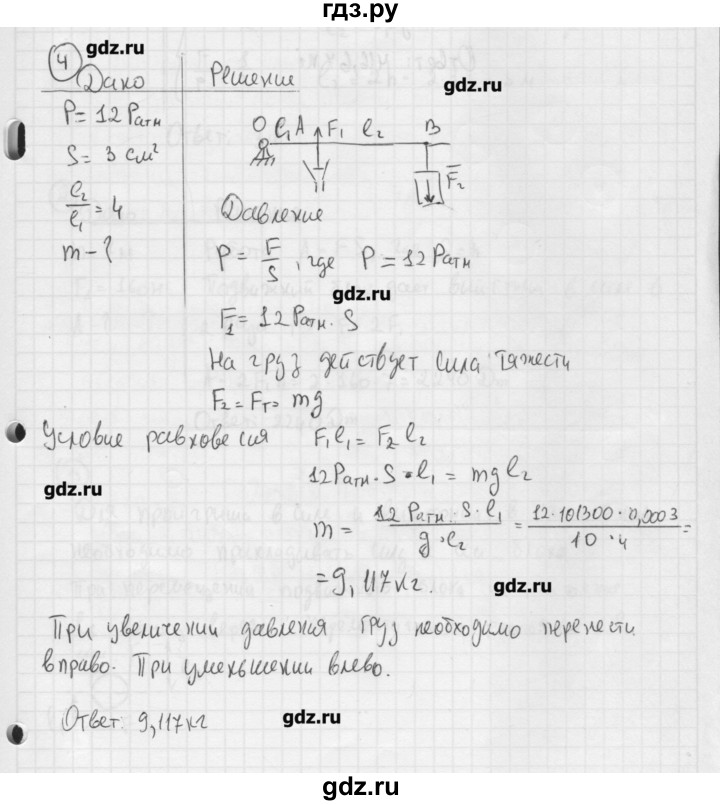 гдз.ру
gdz.ru
4
Дано
Решение
gdz.ru
P = 12 Pатн
S = 3 см²
l₂/l₁ = 4
m - ?
O l₁ A F₁ l₂ B
F₂
Давление
P = F/S, где P = 12 Pатн
gdz.ru
F₁ = 12 Pатн · S
На груз действует сила тяжести
F₂ = Fт = mg
Условие равновесия F₁l₁ = F₂l₂
gdz.ru
12 Pатн · S · l₁ = mgl₂
m = 12 Pатн · S · l₁ / g · l₂ = 12 · 101300 · 0,0003 / 10 · 4 =
= 9,117 кг.
gdz.ru
При увеличении давления груз необходимо перенести
вправо. При уменьшении влево.
Ответ: 9,117 кг
gdz.ru
gdz.ru